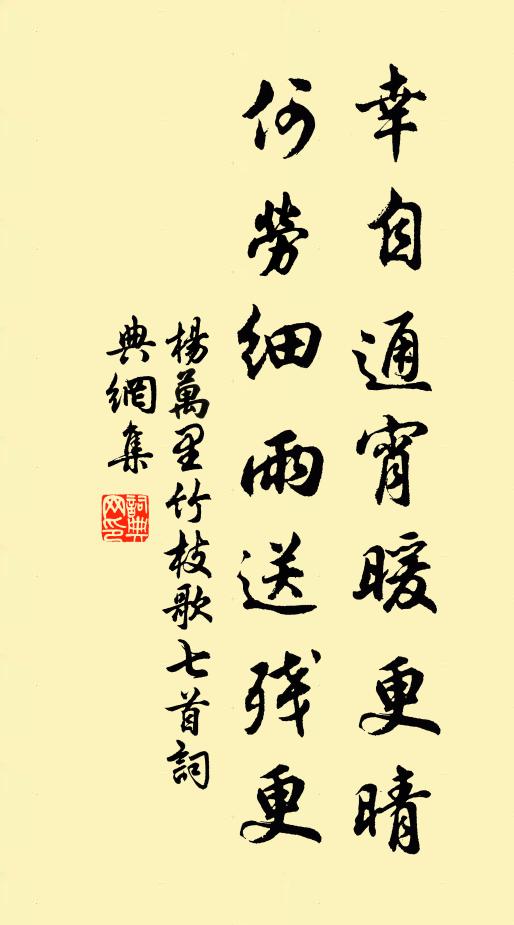 幸自通宵暖更晴
何勞細雨送残更
楊萬里竹枝歌七首詞
典網集
詞典
网印